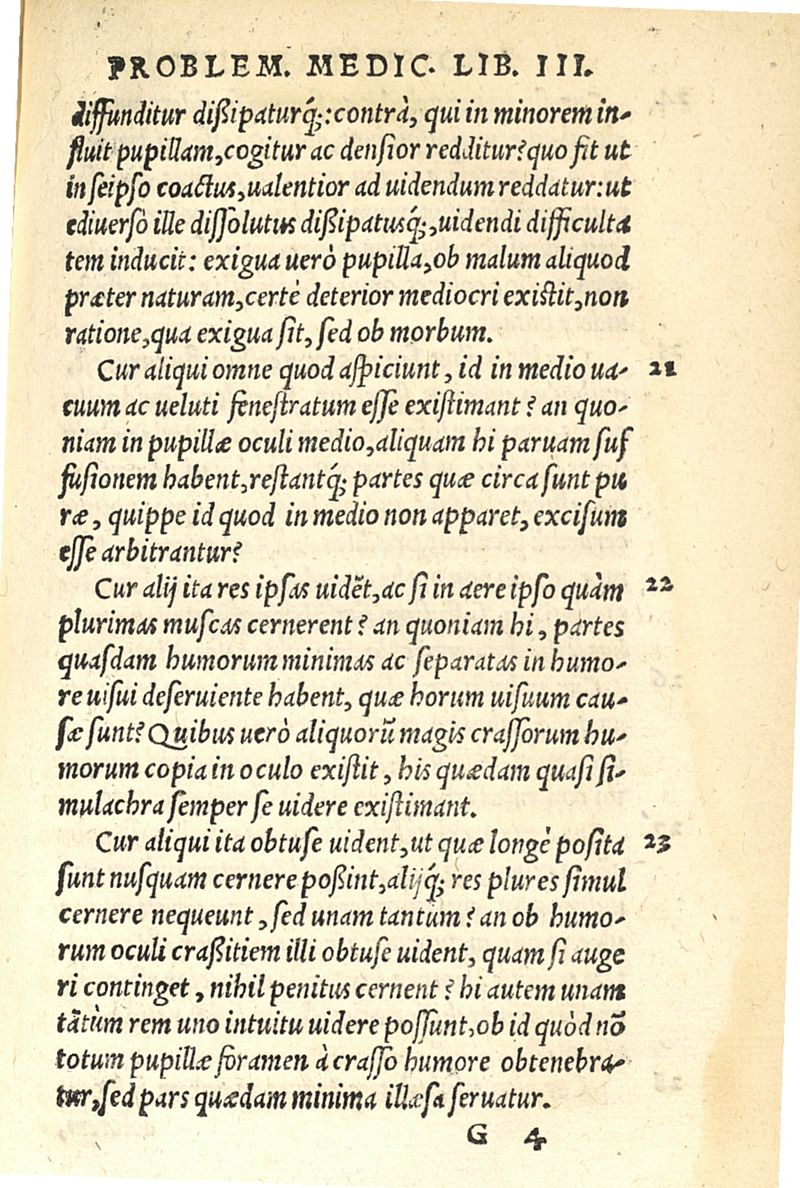 PROBLEM. MEDIC. LIB. III.
diffunditur dißipaturq́;: contrà, qui in minorem in-
fluit pupillam, cogitur ac densior redditur? quo fit ut
in seipso coactus, ualentior ad uidendum reddatur: ut
ediuerso ille dissolutus dißipatusq́;, uidendi difficulta
tem inducit: exigua uerò pupilla, ob malum aliquod
præter naturam, certè deterior mediocri existit, non
ratione, qua exigua sit, sed ob morbum.
Cur aliqui omne quod aspiciunt, id in medio ua- 21
cuum ac ueluti fenestratum esse existimant? an quo-
niam in pupillæ oculi medio, aliquam hi paruam suf
fusionem habent, restantq́; partes quæ circa sunt pu
ræ, quippe id quod in medio non apparet, excisum
esse arbitrantur?
Cur alij ita res ipsas uidẽt, ac si in aere ipso quàm 22
plurimas muscas cernerent? an quoniam hi, partes
quasdam humorum minimas ac separatas in humo-
re uisui deseruiente habent, quæ horum uisuum cau-
sæ sunt? Quibus uerò aliquorũ magis crassorum hu-
morum copia in oculo existit, his quædam quasi si-
mulachra semper se uidere existimant.
Cur aliqui ita obtuse uident, ut quæ longè posita 23
sunt nusquam cernere poßint, alijq́; res plures simul
cernere nequeunt, sed unam tantùm? an ob humo-
rum oculi craßitiem illi obtuse uident, quam si auge
ri continget, nihil penitus cernent? hi autem unam
tãtùm rem uno intuitu uidere possunt, ob id quòd nõ
totum pupillæ foramen à crasso humore obtenebra-
tur, sed pars quædam minima illæsa seruatur.
G 4